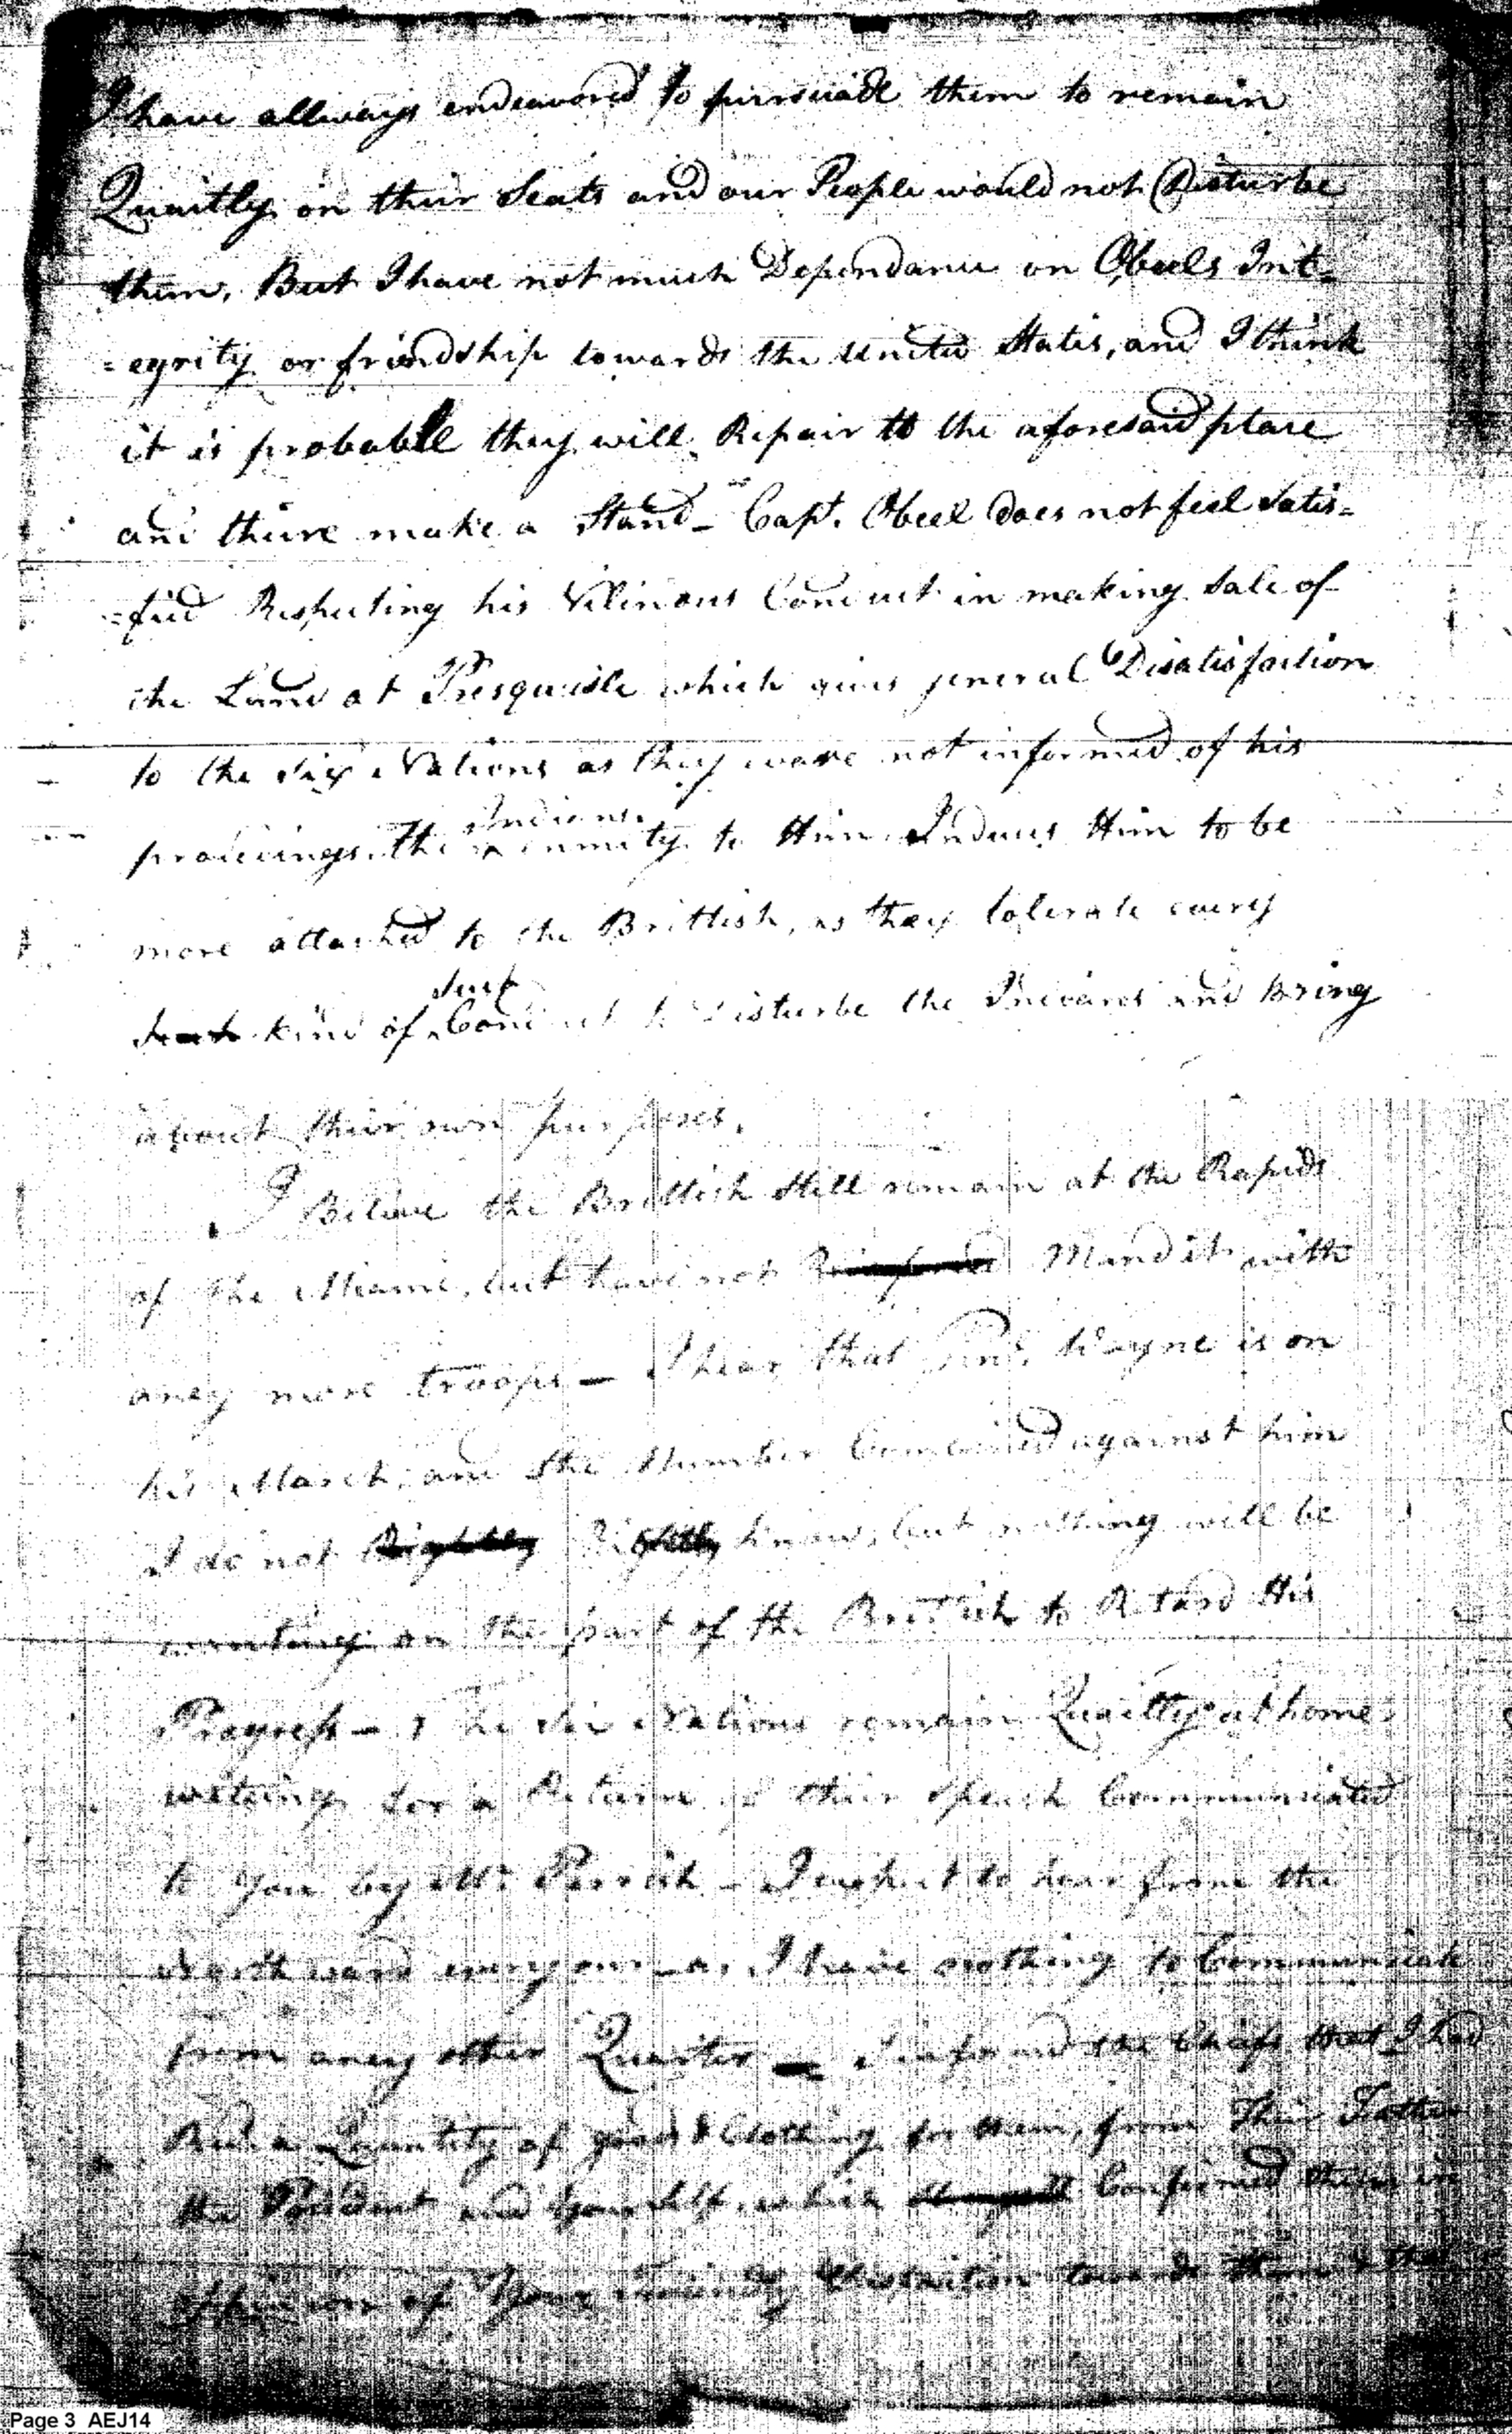 I have allways endeavored to purswade them to remain
Quaitly on their Seats and our People would not Disturbe
them, But I have not much Dependance on Obeels Int=
=egrity or friendship towards the United States, and I think
it is probable they will Repair to the aforesaid place
and there make a Stand_ Capt. Obeel does not feel Satis=
=fied Respecting his Vilinous Conduct in making Sale of
the Land at Presquisle which gives general Disatisfaction
to the Six Nations as they ware not informed of his
proceeings. The Indians enmity to Him Induces Him to be
more attached to the Brittish, as they tolerate every
Such kind of Such Conduct to Disturbe the Indians and Bring
about their own purposes.
I Believe the Brittish Still remain at the Rapids
of the Miami, but have not Reinforced Mand it with
aney more troops_ I hear that Genl. Wayne is on
his March, and the Number Combined against him
I do not Rightly Rightly know, but nothing will be
wanting on the part of the British to Retard His
Progress_ The Six Nations remain Quaitly at home
waiting for a Return of their Speach Communicated
to you by Mr. Parrish_ I expect to hear from the
westward every our_ as I have nothing to Communicate
from aney other Quarter_ I informed the Chiefs that I had
a Quantity of good & Clothing for them, from Their Father
the President and yourself, which Confirmed them in
oppinion of Your friendly towards them & that